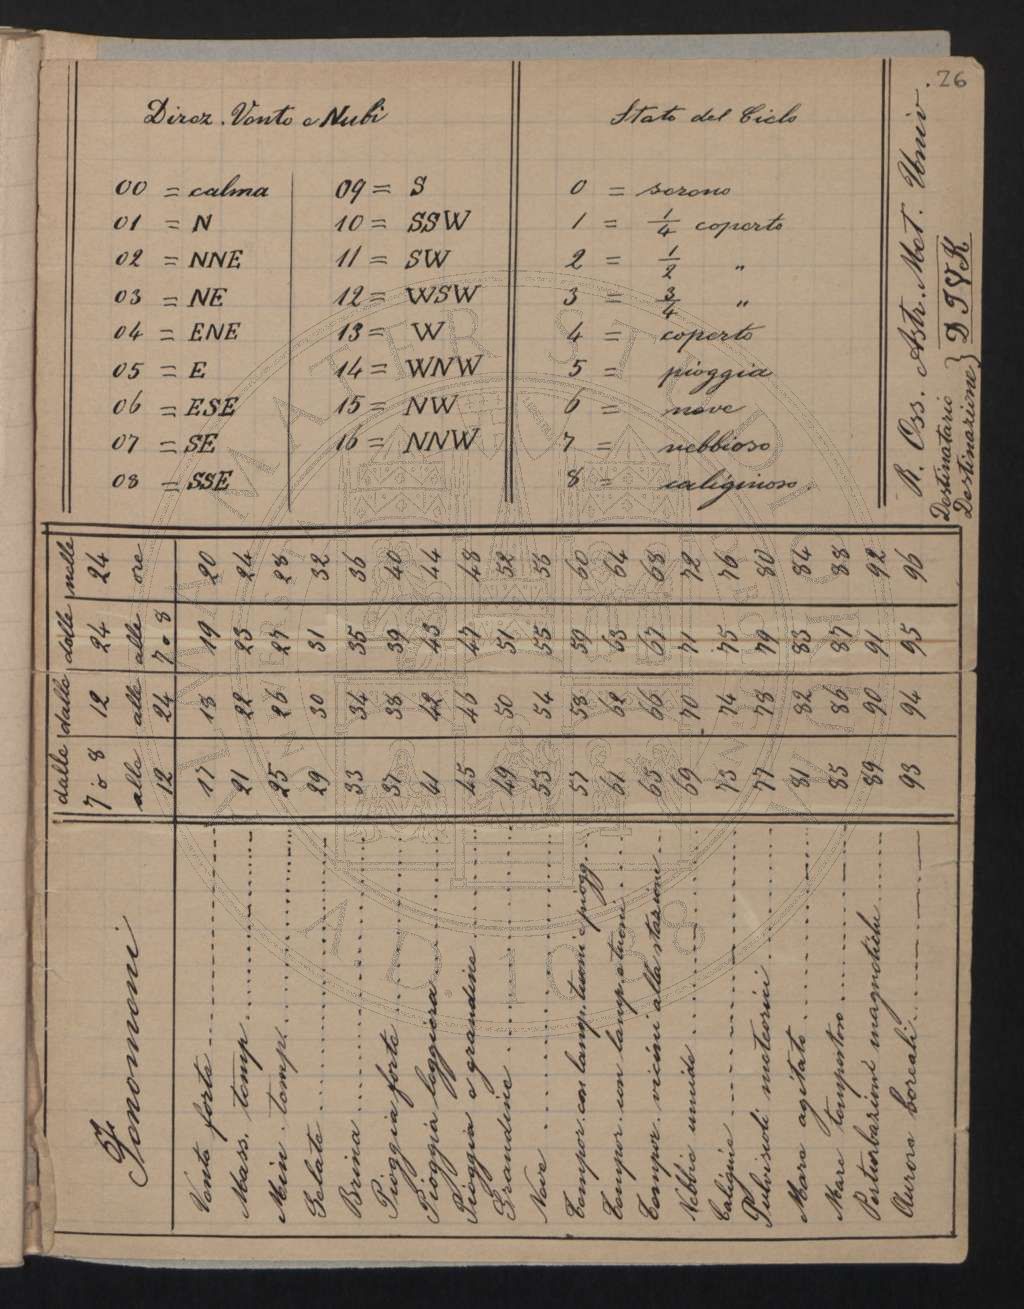 26
Direz. Vento e Nubi
00 = calma
01 = N
02 = NNE
03 = NE
04 = ENE
05 = E
06 = ESE
07 = SE
08 = SSE
09 = S
10 = SSW
11 = SW
12 = WSW
13 = W
14 = WNW
15 = NW
16 = NNW
Stato del Cielo
0 = sereno
1 = 1/4 coperto
2 = 1/2 "
3 = 3/4 "
4 = coperto
5 = pioggia
6 = neve
7 = nebbioso
8 = caliginoso.
R. Oss. Astr. Met. Univ.
Destinatario
Destinazione } D I V K
Fenomeni dalle 7 o 8 alle 12 dalle 12 alle 24 dalle 24 alle 7 o 8 nelle 24 ore
Vento forte 17 18 19 20
Mass. temp 21 22 23 24
Min. temp. 25 26 27 28
Gelata 29 30 31 32
Brina 33 34 35 36
Pioggia forte 37 38 39 40
Pioggia leggiera 41 42 43 44
Pioggia e grandine 45 46 47 48
Grandine 49 50 51 52
Neve 53 54 55 56
Tempor. con lamp. tuoni e piogg. 57 58 59 60
Tempor. con lamp. e tuoni 61 62 63 64
Tempor. vicini alla stazione 65 66 67 68
Nebbie umide 69 70 71 72
Caligine 73 74 75 76
Pulviscoli meteorici 77 78 79 80
Mare agitato 81 82 83 84
Mare tempestoso 85 86 87 88
Perturbazioni magnetiche 89 90 91 92
Aurore boreali 93 94 95 96
ALMA MATER STUDIORUM
A.D. 1088